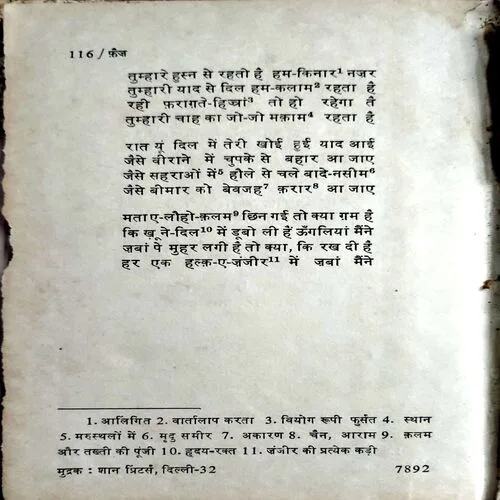 116 / फ़ैज़
तुम्हारे हुस्न से रहती है हम-किनार¹ नज़र
तुम्हारी याद से दिल हम-कलाम² रहता है
रही फ़राग़ते-हिज्रां³ तो हो रहेगा तै
तुम्हारी चाह का जो-जो मक़ाम⁴ रहता है
रात यूं दिल में तेरी खोई हुई याद आई
जैसे वीराने में चुपके से बहार आ जाए
जैसे सहराओं में⁵ हौले से चले बादे-नसीम⁶
जैसे बीमार को बेवजह⁷ क़रार⁸ आ जाए
मताए-लौहो-क़लम⁹ छिन गई तो क्या ग़म है
कि ख़ूने-दिल¹⁰ में डूबो ली हैं ऊँगलियां मैंने
ज़बां पे मुहर लगी है तो क्या, कि रख दी है
हर एक हल्क़-ए-ज़ंजीर¹¹ में ज़बां मैंने
1. आलिंगित 2. वार्तालाप करता 3. वियोग रूपी फुर्सत 4. स्थान
5. मरुस्थलों में 6. मृदु समीर 7. अकारण 8. चैन, आराम 9. क़लम
और तख्ती की पूंजी 10. हृदय-रक्त 11. ज़ंजीर की प्रत्येक कड़ी
मुद्रक : शान प्रिंटर्स, दिल्ली-32 7892